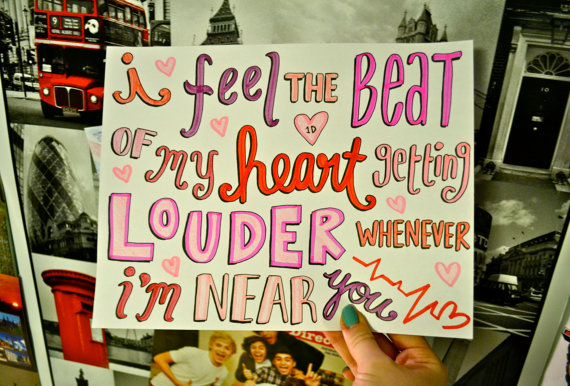 i feel THE BEAT
OF my heart getting
LOUDER WHENEVER
i'm NEAR you
1D
9
10